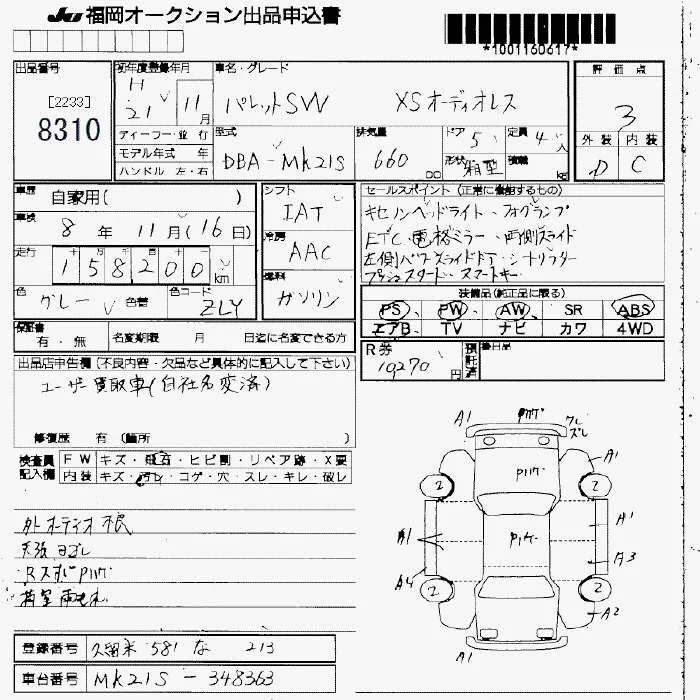 JU 福岡オークション出品申込書
*1001160617*
出品番号
[2233]
8310
初年度登録年月
H 21 年 11 月
ディーラー・並行
モデル年式 年
ハンドル 左・右
車名・グレード
パレットSW XSオーディオレス
型式
DBA-MK21S
排気量
660 cc
ドア 5
形状 箱型
定員 4 人
積載 kg
評価点
3
外装 内装
D C
車歴 自家用( )
車検 8 年 11 月(16日)
走行 158200 km
色 グレー 色替
色コード ZLY
シフト
IAT
冷房
AAC
燃料
ガソリン
セールスポイント (正常に機能するもの)
キセノンヘッドライト・フォグランプ
ETC・電格ミラー・両側スライド
左側パワースライドドア・シートリフター
プッシュスタート・スマートキー
装備品(純正品に限る)
PS、PW、AW、SR ABS
エアB TV ナビ カワ 4WD
保証書 有・無
名変期限 月 日迄に名変できる方
R券
10,270 円
預託済
後日品
出品店申告欄(不良内容・欠品など具体的に記入して下さい)
ユーザー買取車(自社名変済)
修復歴 有 (箇所 )
検査員記入欄
FW キズ・飛石・ヒビ割・リペア跡・X要
内装 キズ・汚レ・コゲ・穴・スレ・キレ・破レ
外オーディオ根
天張ヨゴレ
A1 A1 A1 A1 A1 A2 A3 A4
2 2 2 2
登録番号 久留米 581 な 213
車台番号 MK21S-348363